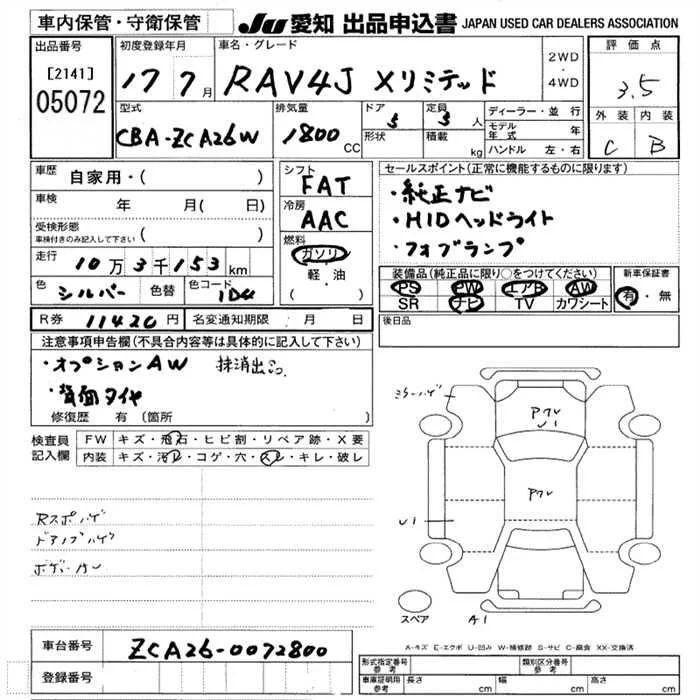 車内保管・守衛保管
JU 愛知 出品申込書 JAPAN USED CAR DEALERS ASSOCIATION
出品番号 初度登録年月 車名・グレード 評価点
[2141] 05072
17 7月 RAV4J Xリミテッド 2WD・4WD 3.5
型式 排気量 ドア 定員 ディーラー・並行 外装 内装
CBA-ZCA26W 1800cc 5 5人 モデル年式 年 C B
形状 積載 kg ハンドル 左・右
車歴 自家用・( ) シフト FAT セールスポイント(正常に機能するものに限ります)
車検 年 月( 日) 冷房 AAC ・純正ナビ
受検形態 車検付きのみ記入して下さい ( ) ・HIDヘッドライト
走行 10万3千153km 燃料 ガソリン ・フォグランプ
色 シルバー 色替 色コード 1D4 軽・油 ( )
装備品(純正品に限り○をつけてください) 新車保証書
PS PW エアB AW 有・無
SR ナビ TV カワシート
R券 11420円 名変通知期限 月 日 後日品
注意事項申告欄(不具合内容等は具体的に記入して下さい)
・オプションAW 抹消出品
・背面タイヤ
修復歴 有(箇所 )
検査員記入欄 FW キズ・飛石・ヒビ割・リペア跡・X要
内装 キズ・汚レ・コゲ・穴・スレ・キレ・破レ
ミラーハゲ
Pクレ
U1
Pクレ
U1
Rスポハゲ
ドアノブハゲ
スペア A1
A-キズ E-エクボ U-凹み W-補修跡 S-サビ C-腐食 XX-交換済
車台番号 ZCA26-0072800
登録番号
形式指定番号 参考 類別区分番号 参考
車庫証明用 参考 長さ cm 幅 cm 高さ cm